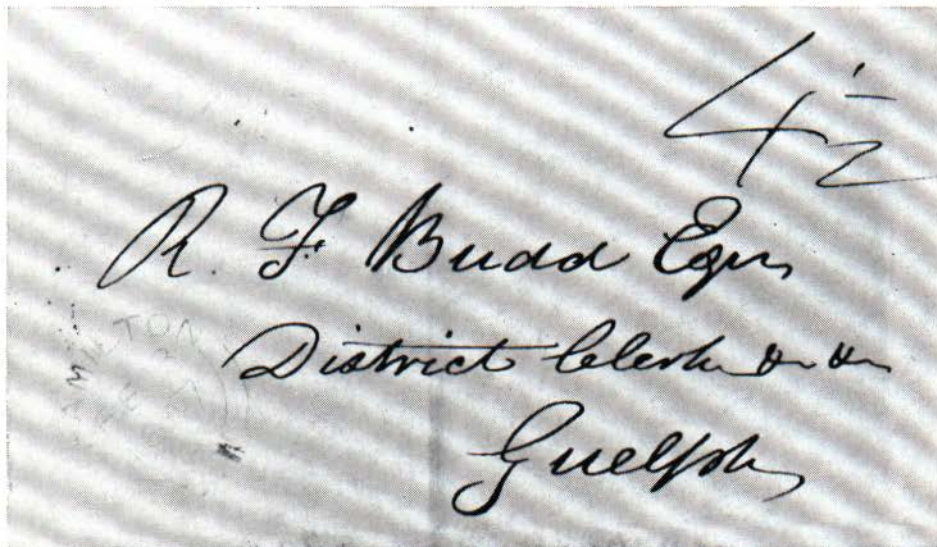 4½
R. F. Budd Esqr
District Clerk &c &c
Guelph